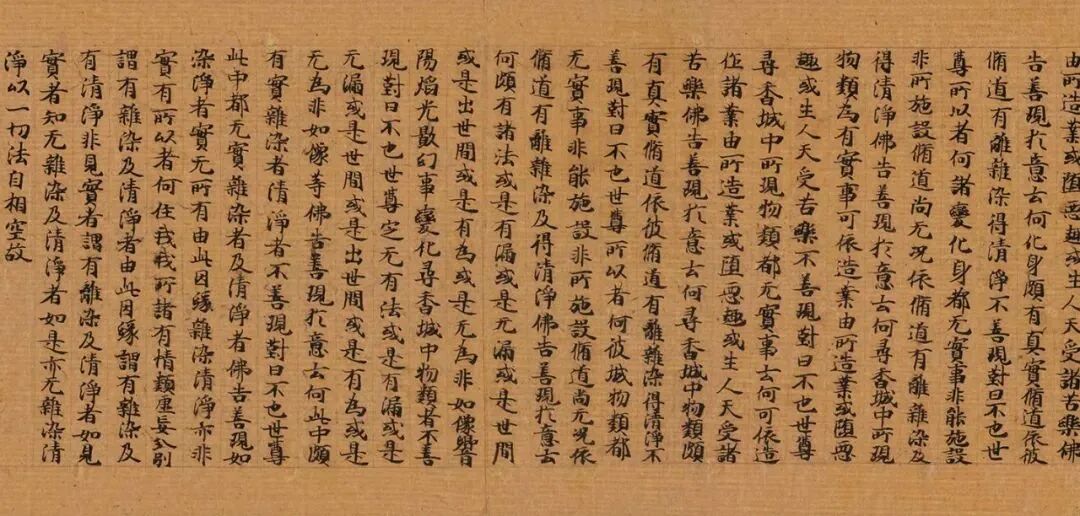 由所造業或墮惡趣或生人天受諸苦樂佛
告善現於意云何化身頗有真實脩道依彼
脩道有離雜染得清淨不善現對曰不也世
尊所以者何諸變化身都无實事非能施設
非所施設脩道尚无況依脩道有離雜染及
得清淨佛告善現於意云何尋香城中所現
物類為有實事可依造業由所造業或墮惡
趣或生人天受苦樂不善現對曰不也世尊
尋香城中所現物類都无實事云何可依造
作諸業由所造業或墮惡趣或生人天受諸
苦樂佛告善現於意云何尋香城中物類頗
有真實脩道依彼脩道有離雜染得清淨不
善現對曰不也世尊所以者何彼城物類都
无實事非能施設非所施設脩道尚无況依
脩道有離雜染及得清淨佛告善現於意云
何頗有諸法或是有漏或是无漏或是世間
或是出世間或是有為或是无為非如像響
陽焰光影幻事變化尋香城中物類者不善
現對曰不也世尊定无有法或是有漏或是
无漏或是世間或是出世間或是有為或是
无為非如像等佛告善現於意云何此中頗
有實雜染者清淨者不善現對曰不也世尊
此中都无實雜染者及清淨者佛告善現如
染淨者實无所有由此因緣雜染清淨亦非
實有所以者何住我我所諸有情類虛妄分別
謂有雜染及清淨者由此因緣謂有雜染及
有清淨非見實者謂有離染及清淨者如見
實者知无雜染及清淨者如是亦无雜染清
淨以一切法自相空故